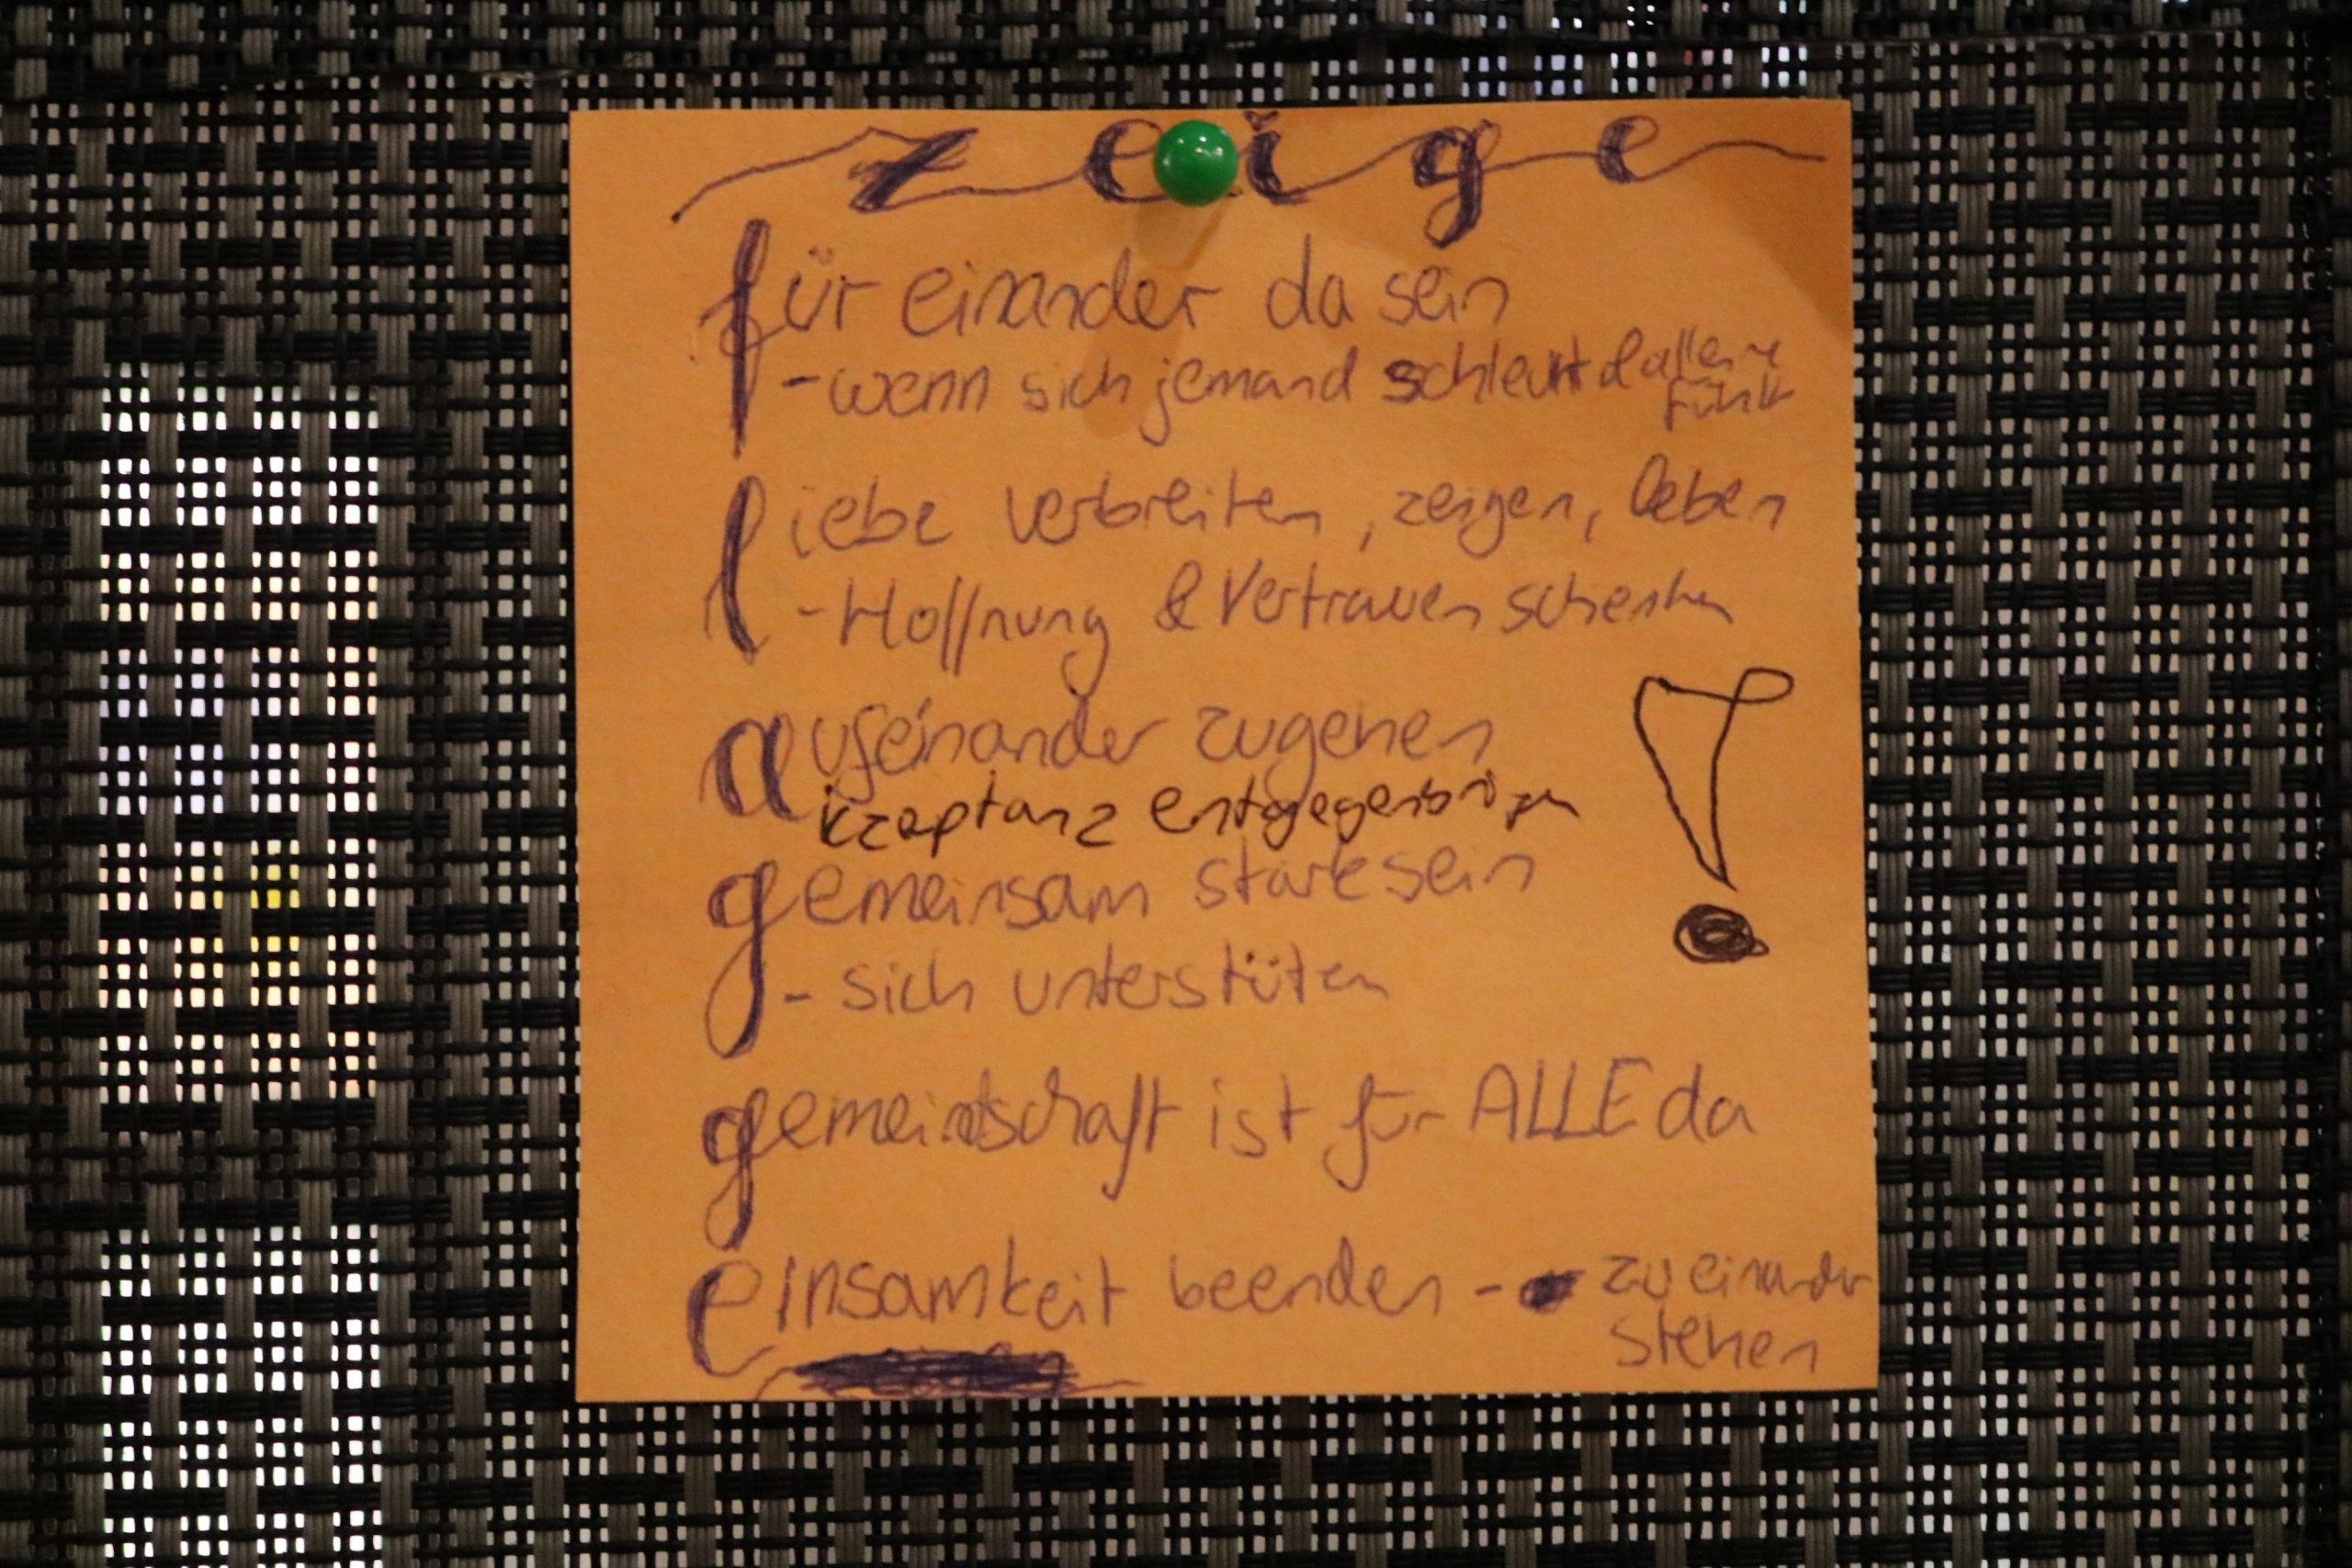 zeige
für einander da sein
- wenn sich jemand schlecht & alleine
fühlt
liebe verbreiten, zeigen, leben
- Hoffnung & Vertrauen schenken
aufeinander zugehen
kzeptanz entgegenbringen
gemeinsam stark sein
- sich unterstüten
gemeindschaft ist für ALLE da
einsamkeit beenden - zu einander
stehen
!